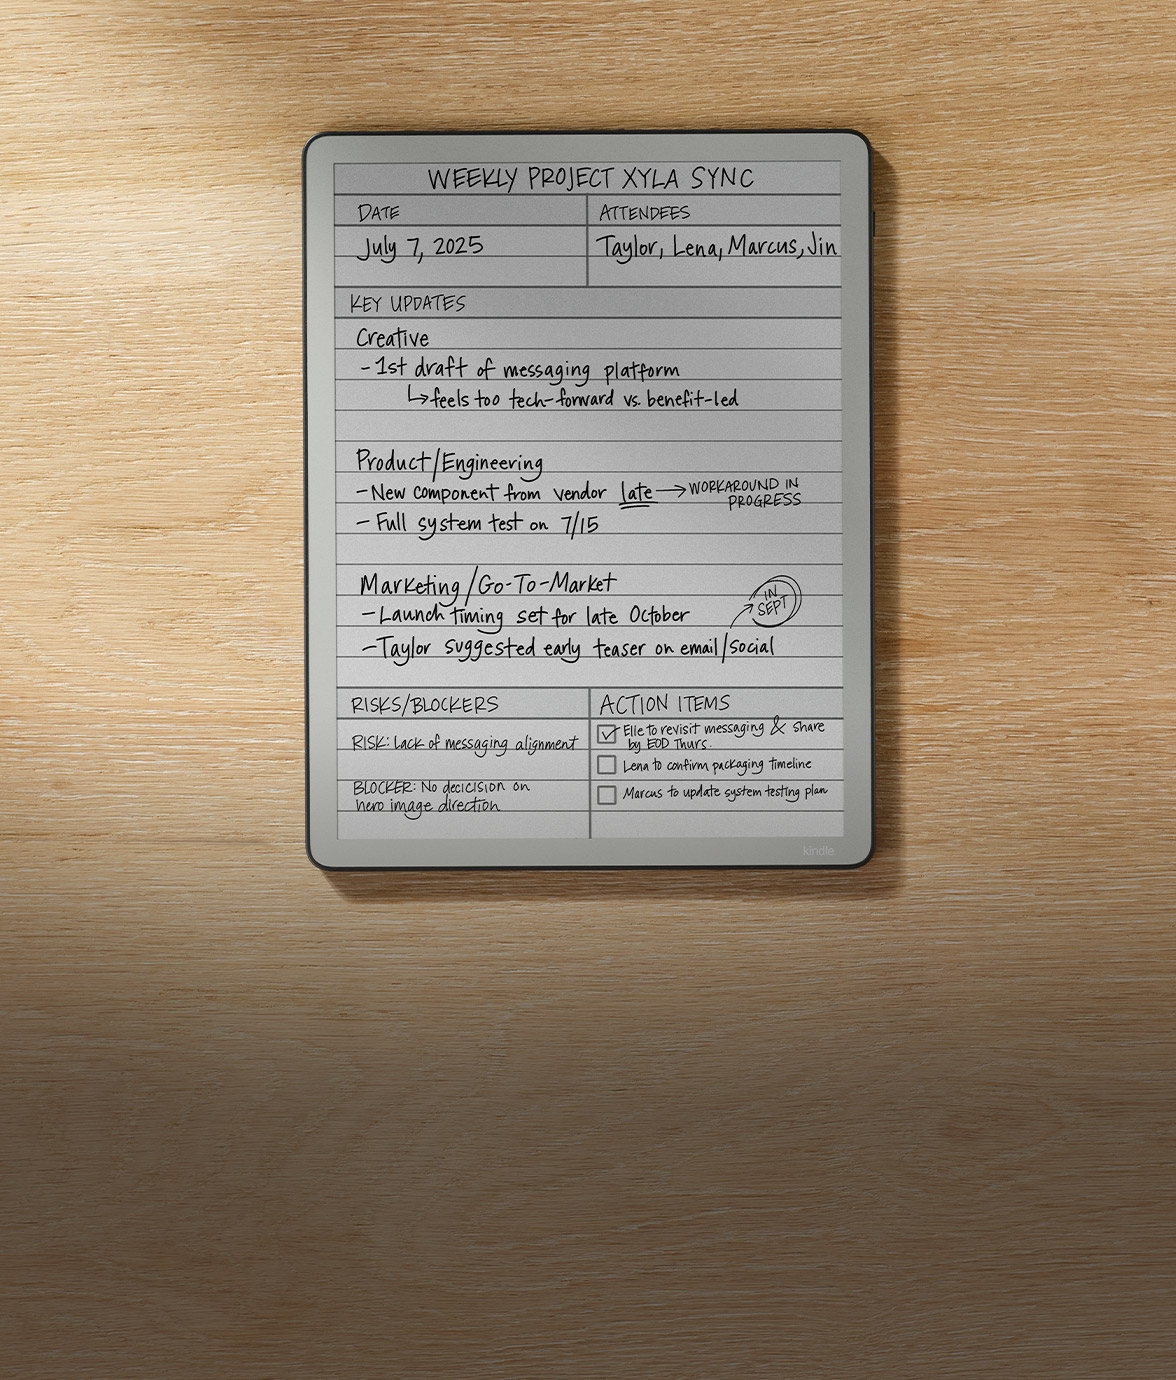 WEEKLY PROJECT XYLA SYNC
DATE
ATTENDEES
July 7, 2025
Taylor, Lena, Marcus, Jin
KEY UPDATES
Creative
-1st draft of messaging platform
↳feels too tech-forward vs. benefit-led
Product/Engineering
-New component from vendor late → WORKAROUND IN
PROGRESS
- Full system test on 7/15
Marketing/Go-To-Market
-Launch timing set for late October
IN
SEPT
-Taylor suggested early teaser on email/social
RISKS/BLOCKERS
RISK: Lack of messaging alignment
BLOCKER: No decicision on
hero image direction
ACTION ITEMS
Elle to revisit messaging & share
by EOD Thurs.
Lena to confirm packaging timeline
Marcus to update system testing plan
kindle